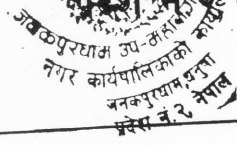 जनकपुरधाम उप-महानगरपालिका
नगर कार्यपालिकाको कार्यालय
जनकपुरधाम, धनुषा
प्रदेश नं. २, नेपाल